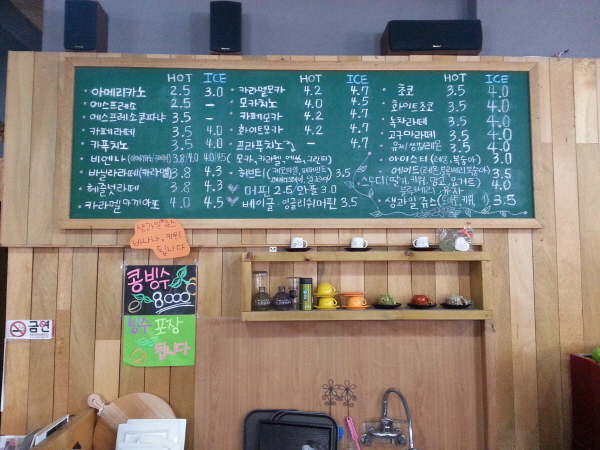 HOT ICE
아메리카노 2.5 3.0
에스프레소 2.5 –
에스프레소콘파나 3.5 –
카페라떼 3.5 4.0
카푸치노 3.5 4.0
비엔나 3.8 4.0
바닐라라떼(카라멜) 3.8 4.3
헤즐넛라떼 3.8 4.3
카라멜마끼아또 4.0 4.5
HOT ICE
카라멜모카 4.2 4.7
모카치노 4.0 4.5
카페모카 4.2 4.7
화이트모카 4.2 4.7
프라푸치노 – 4.7
모카, 카라멜, 그린티
허브티 3.5
머핀 2.5/와플 3.0
베이글, 잉글리쉬머핀 3.5
HOT ICE
쵸코 3.5 4.0
화이트쵸코 3.5 4.0
녹차라떼 3.5 4.0
고구마라떼 3.5 4.0
유자/생강/레몬 3.5 4.0
아이스티(레몬, 복숭아) 3.0
에이드 3.5
스무디(딸기, 키위, 망고, 요거트 4.0
생과일쥬스 3.5
생과일쥬스
바나나, 키위
됩니다
콩빙수
8000
빙수 포장
됩니다
금연